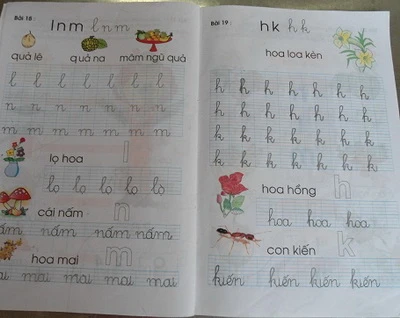 Bài 18 :
l n m l n m
quả lê quả na mâm ngũ quả
l l l l l l l
n n n n n n n
m m m m m m m
lọ hoa l
lọ lọ lọ lọ lọ
cái nấm n
nấm nấm nấm nấm
hoa mai m
mai mai mai mai
Bài 19 :
h k h k
hoa loa kèn
h h h h h h h
h h h h h h h
k k k k k k k
k k k k k k k
hoa hồng h
hoa hoa hoa
con kiến k
kiến kiến kiến kiến